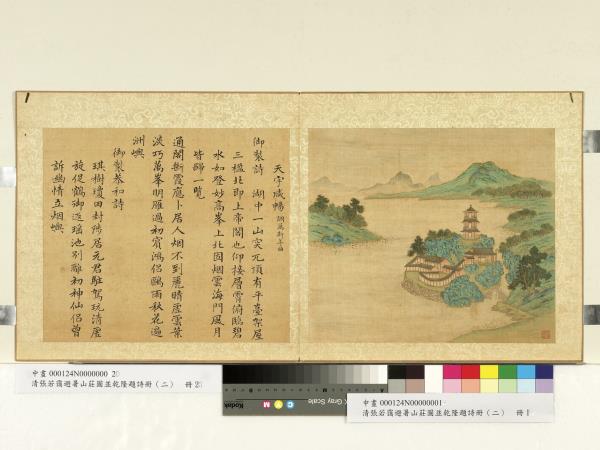 天宇咸暢 調萬斯年曲
御製詩 湖中一山突兀頂有平臺架屋
三楹北即上帝閣也仰接層霄俯臨碧
水如登妙高峯上北固烟雲海門風月
皆歸一覽
通閣斷霞應卜居人烟不到麗晴虛雲葉
淡巧萬峯明雁過初賓鴻侶鷗雨秋花遍
洲嶼
御製恭和詩
琪樹瓊田封隝居元君駐駕玩清虛
旋促鶴御返瑤池別離初神仙侶曾
訴幽情立烟嶼
中畫 000124N0000000 2
清張若靄避暑山莊圖並乾隆題詩冊（二） 冊2
Kodak
C Y M
Gray Scale
中畫 000124N00000001
清張若靄避暑山莊圖並乾隆題詩冊（二） 冊1